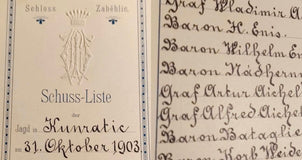 Schloss Zaběhlic.
Schuss-Liste
der
Jagd in Kunratic
am 31. Oktober 1903
Graf Wladimir
Baron H. Enis.
Baron Wilhelm En
Baron Nádhern
Graf Artur Aichel
Graf Alfred Aichel
Baron Bataglie
Baron Karl Weide